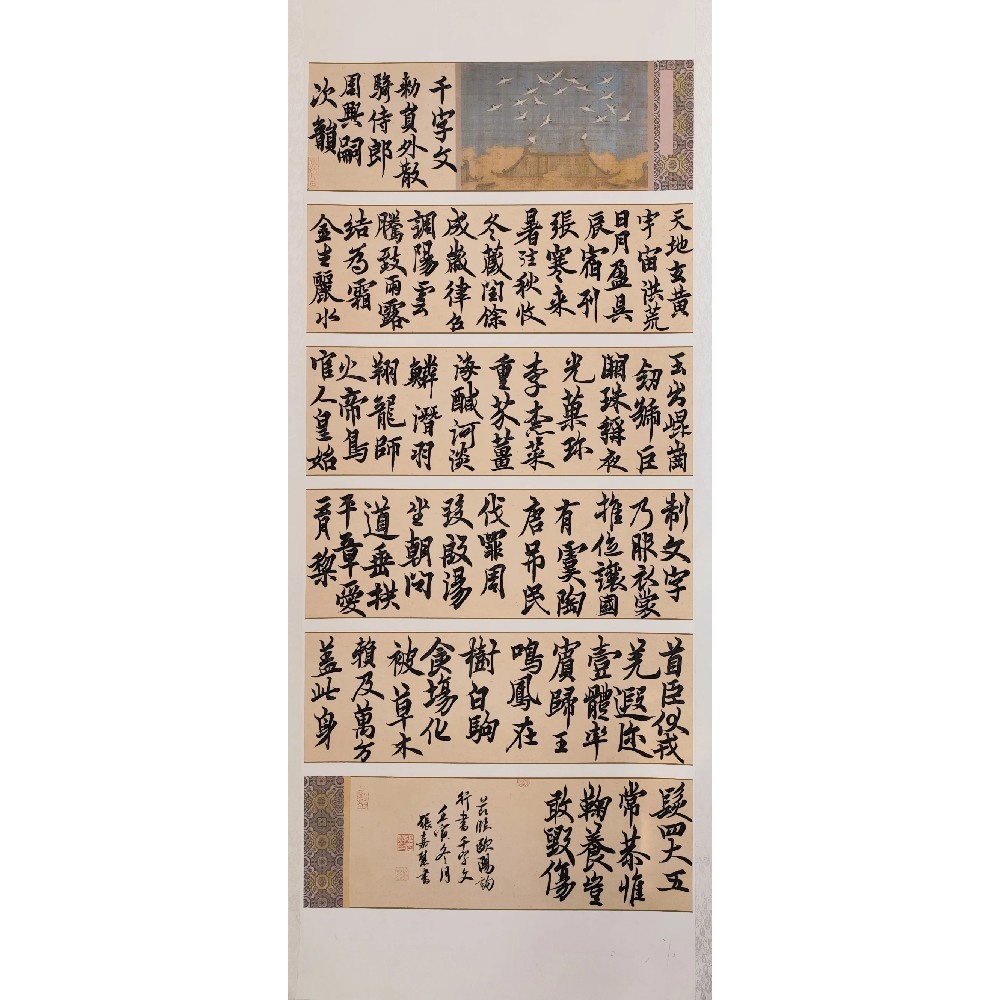 千字文
勑員外散
騎侍郎
周興嗣
次韻
天地玄黃
宇宙洪荒
日月盈昃
辰宿列
張寒来
暑往秋收
冬藏閏餘
成歲律呂
調陽雲
騰致雨露
結為霜
金生麗水
玉出崐崗
劎號巨
闕珠稱夜
光菓珎
李柰菜
重芥薑
海醎河淡
鱗潛羽
翔龍師
火帝鳥
官人皇始
制文字
乃服衣裳
推位讓國
有虞陶
唐弔民
伐罪周
發殷湯
坐朝問
道垂拱
平章愛
育黎
首臣伏戎
羌遐迩
壹體率
賓歸王
鳴鳳在
樹白駒
食場化
被草木
賴及萬方
蓋此身
髮四大五
常恭惟
鞠養豈
敢毀傷
节临歐陽詢
行書千字文
壬寅冬月
張嘉慧書